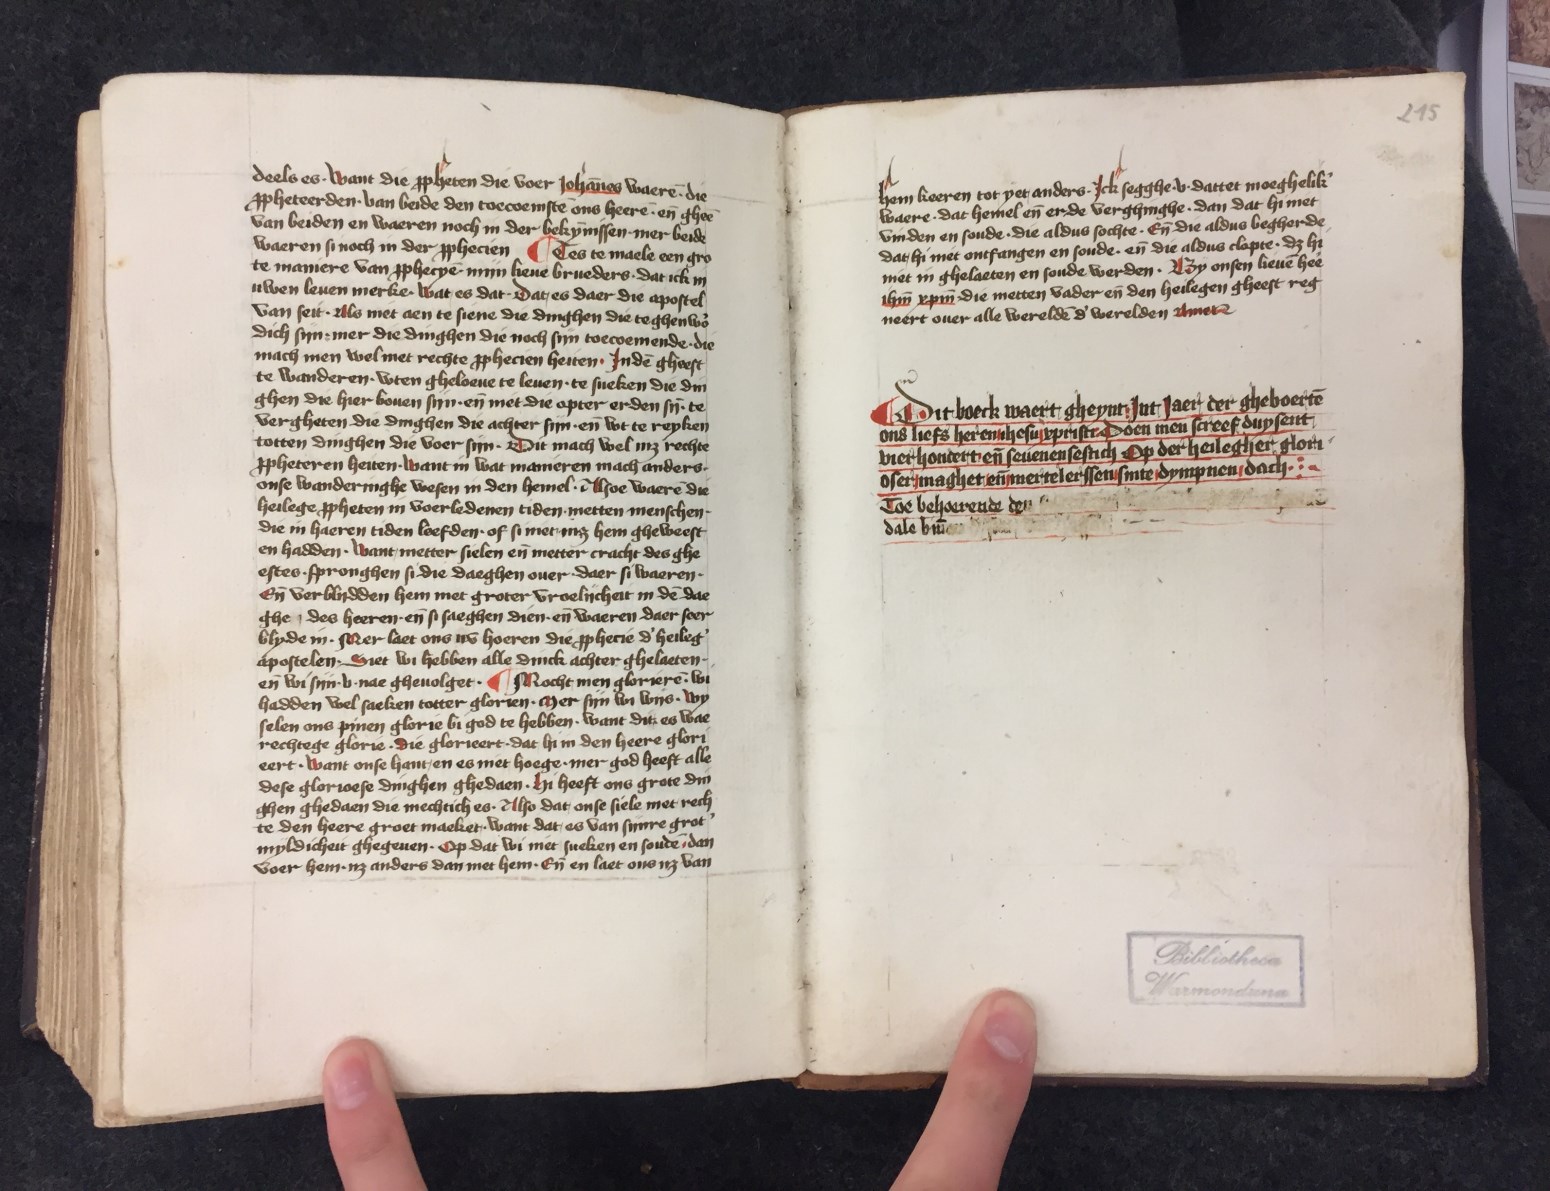 deels es· want die ꝓpheten die voer Johānes waerē· die
ꝓpheteerden· van beide den toecoemstē ons heerē· en̄ gheē
van beiden en waeren noch in der bekȳnissen· mer beide
waeren si noch in der ꝓphecien ¶ Tes te maele een gro
te maniere van ꝓphecyē· mijn lieue brueders· dat ick in
uwen leuen merke· wat es dat· Dat es daer die apostel
van seit· Als niet aen te siene die dinghen die teghenwō
dich sijn· mer die dinghen die noch sijn toecoemende· die
mach men wel met rechte ꝓphecien heiten· Indē gheest
te wanderen· wten gheloeue te leuen· te sueken die din
ghen die hier bouen sijn· en̄ niet die opter erden sn̄· te
vergheten die dinghen die achter sijn· en̄ wt te reyken
totten dinghen die voer sijn· Dit mach wel mꝫ rechte
ꝓpheteren heiten· want in wat manieren mach anders·
onse wanderinghe wesen in den hemel· Alsoe waerē die
heilege ꝓpheten in voerledenen tiden· metten menschen·
die in haeren tiden leefden· of si niet mꝫ hem gheweest
en hadden· want metter sielen en̄ metter cracht des ghe
estes· spronghen si die daeghen ouer· daer si waeren·
En̄ verblijdden hem met groter vroelijcheit in dē dae
ghe des heeren· en̄ si saeghen dien· en̄ waeren daer seer
blyde in· Mer laet ons nv̄ hoeren die ꝓphecie d' heileg'
apostelen· Siet wi hebben alle dinck achter ghelaeten·
en̄ wi sijn· v· nae gheuolget· ¶ Mocht men glorierē· wi
hadden wel saeken totter glorien· Mer sijn wi wijs· wy
selen ons pinen glorie bi god te hebben· want dit es wae
rechtege glorie· Die glorieert· dat hi in den heere glori
eert· want onse hant en es niet hoege· mer god heeft alle
dese glorioese dinghen ghedaen· Hi heeft ons grote din
ghen ghedaen die mechtich es· Also dat onse siele met rech
te den heere groet maeket· want dat es van sijnre grot'
myldicheit ghegeuen· Op dat wi niet sueken en soudē· dan
voer hem· nꝫ anders dan met hem· En̄ en laet ons nꝫ van
215
hem keeren tot yet anders· Ick segghe· v· dattet moeghelik'
waere· dat hemel en̄ erde verghinghe· dan dat hi niet
vinden en soude· die aldus sochte· En̄ die aldus begherde
dat hi niet ontfangen en soude· en̄ die aldus clopte· dꝫ hi
niet in ghelaeten en soude werden· By onsen lieuē heē
ihm̄ xpm̄· die metten vader en̄ den heilegen gheest reg
neert ouer alle werelde d' werelden Amen
¶ Dit boeck waert gheynt· Int Jaer der gheboertē
ons liefs heren ihesu xpristi· Doen men screef duysent
vier hondert en̄ seuenensestich Op der heilegher glori
oser maghet en̄ mertelerssen sinte dympnen dach·
Toe behoerende den
dale bin̄
Bibliotheca
Warmondana